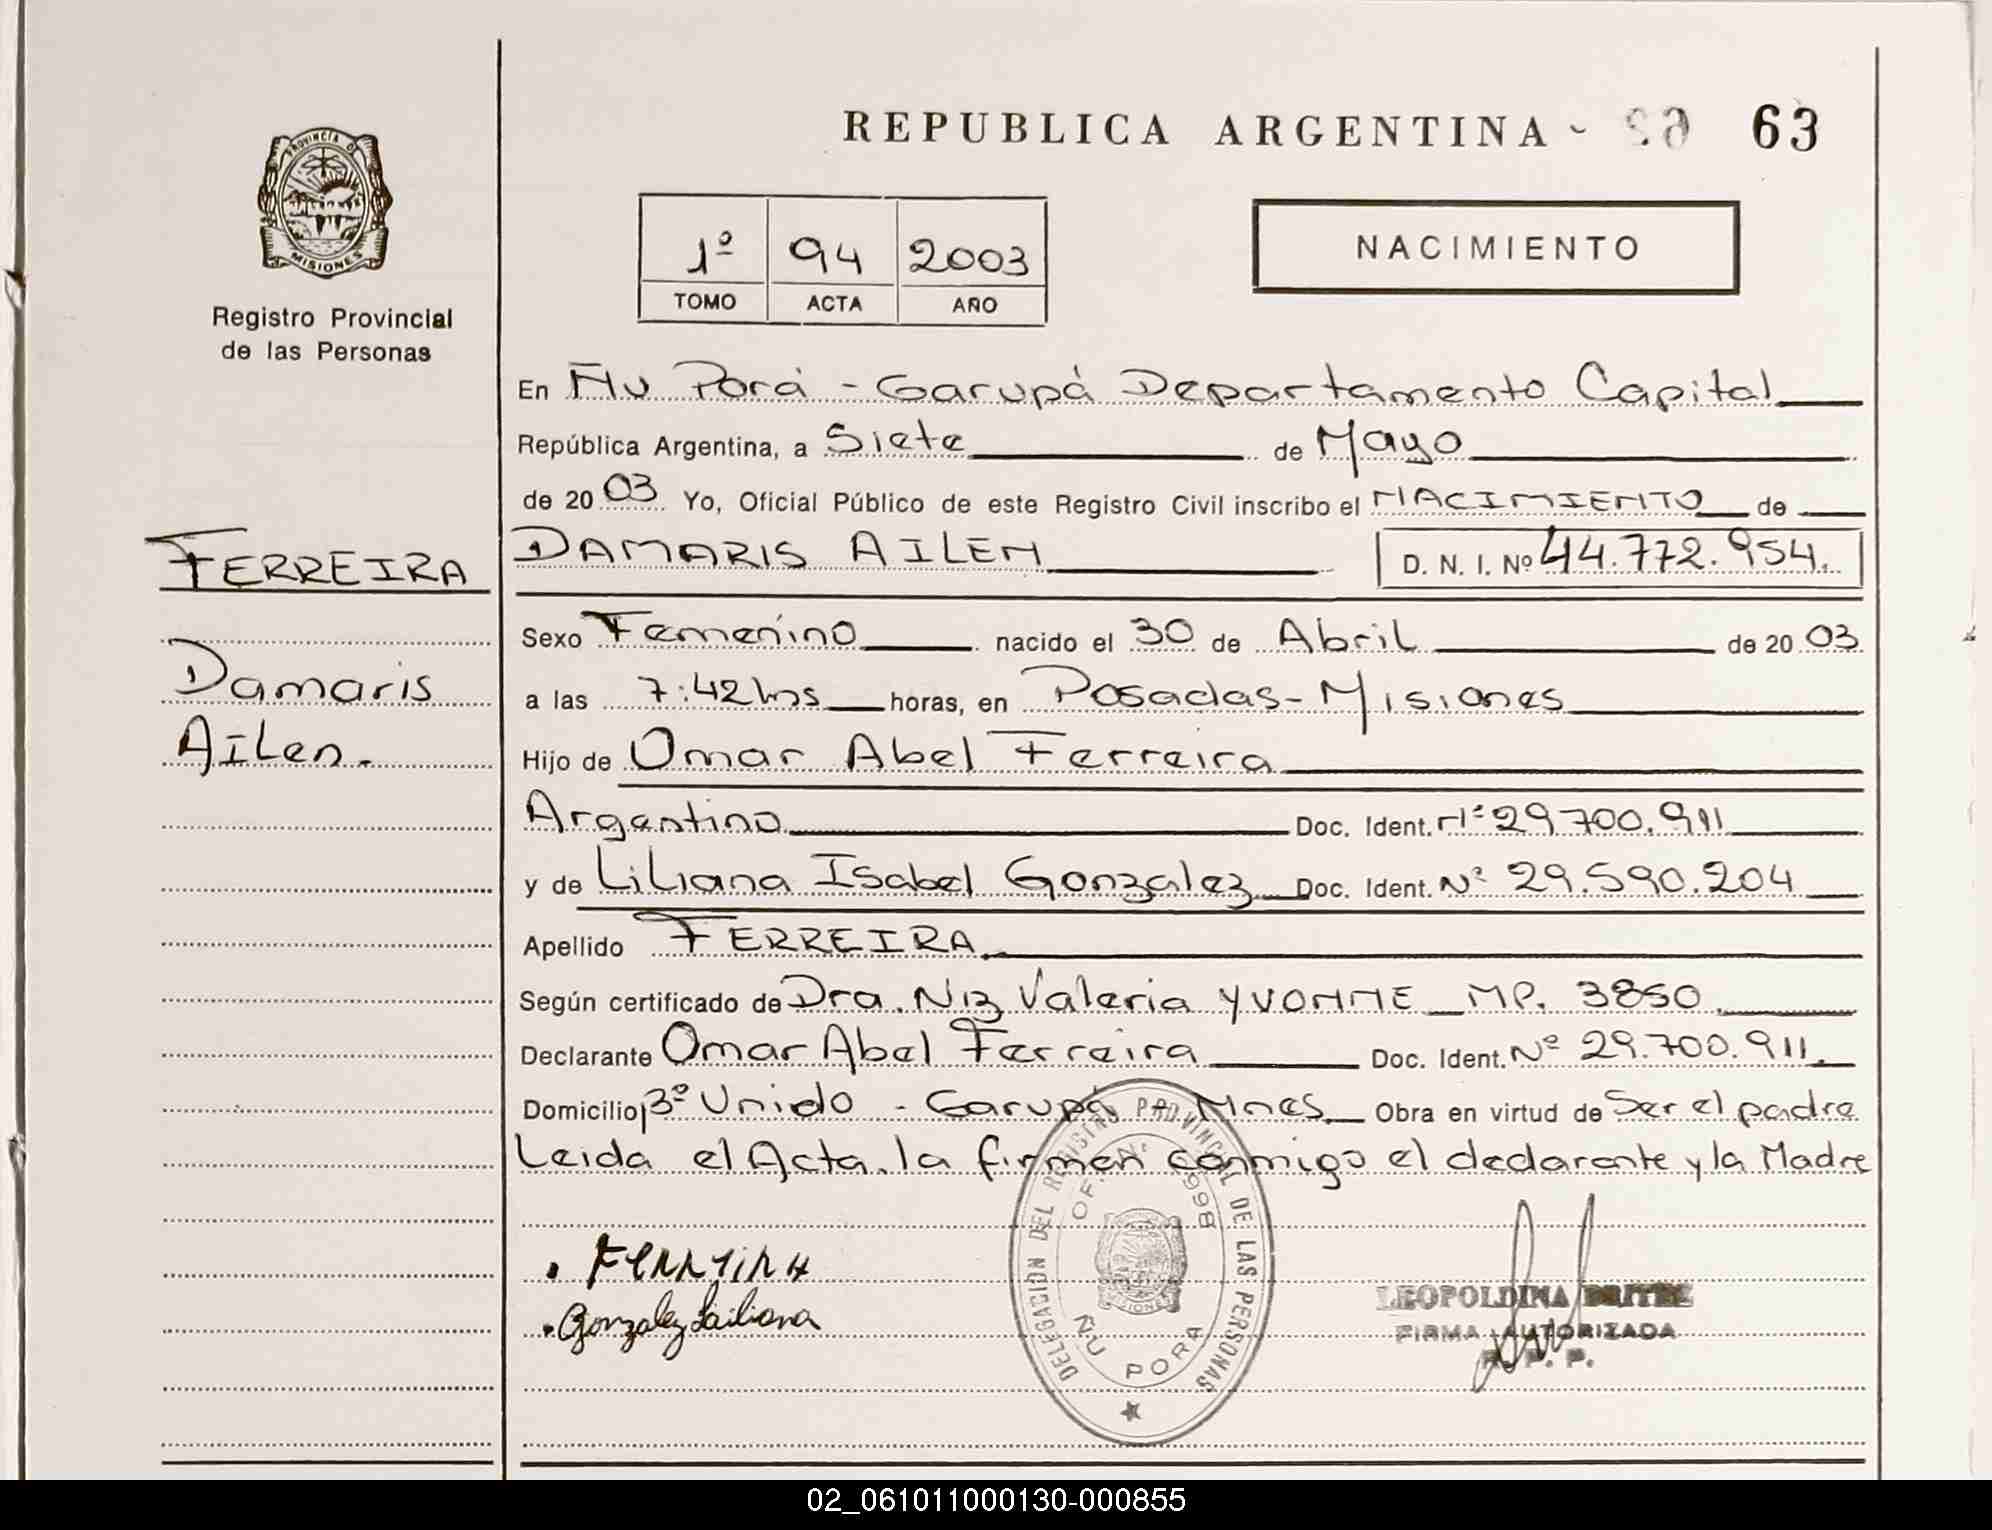 REPUBLICA ARGENTINA 63
PROVINCIA DE
MISIONES
Registro Provincial
de las Personas
1º 94 2003
TOMO ACTA AÑO
NACIMIENTO
En Ñu Porá - Garupá Departamento Capital
República Argentina, a Siete de Mayo
de 20 03 Yo, Oficial Público de este Registro Civil inscribo el NACIMIENTO de
FERREIRA
DAMARIS AILEN D. N. I. Nº 44.772.954.
Sexo Femenino nacido el 30 de Abril de 20 03
Damaris
a las 7:42hs horas, en Posadas-Misiones
Ailen.
Hijo de Omar Abel Ferreira
Argentino Doc. Ident. Nº 29.700.911
y de Liliana Isabel Gonzalez Doc. Ident. Nº 29.590.204
Apellido FERREIRA
Según certificado de Dra. Niz Valeria YVONNE MP. 3850
Declarante Omar Abel Ferreira Doc. Ident. Nº 29.700.911.
Domicilio 3º Unido - Garupá Mnes. Obra en virtud de Ser el padre
Leida el Acta, la firman conmigo el declarante y la Madre
DELEGACION DEL REGISTRO PROVINCIAL DE LAS PERSONAS
OF. Nº 998
MISIONES
ÑU PORA
FERREIRA
Gonzalez Liliana
LEOPOLDINA BRITEZ
FIRMA AUTORIZADA
R. P. P.
02_061011000130-000855